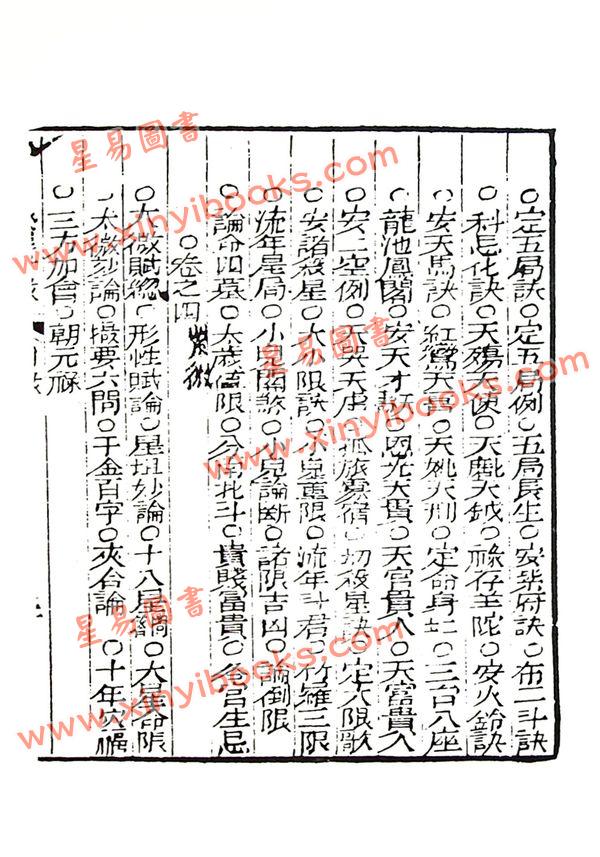 ○定五局訣○定五局例○五局長生○安紫府訣○布二斗訣
○科忌化訣○天殤天使○天魁天鉞○祿存羊陀○安火鈴訣
○安天馬訣○紅鸞天喜○天姚天刑○定命身主○三台八座
○龍池鳳閣○安天才壽○恩光天貴○天官貴人○天富貴人
○安二空例○天哭天虛○孤辰寡宿○劫殺星訣○定大限歌
○安諸殺星○大小限訣○小兒童限○流年斗君○竹羅三限
○流年星局○小兒關煞○小兒論斷○諸限吉凶○論倒限
○論命四墓○太歲值限○分南北斗○貴賤富貴○分宮生忌
○卷之四 紫微
○太微賦總○形性賦論○星垣妙論○十八星綱○大星命限
○太微妙論○撮要六問○千金百字○夾合論○十年災福
○三方加會○朝元祿
星易圖書
www.xinyibooks.com
星易圖書
www.xinyibooks.com
星易圖書
www.xinyibooks.com